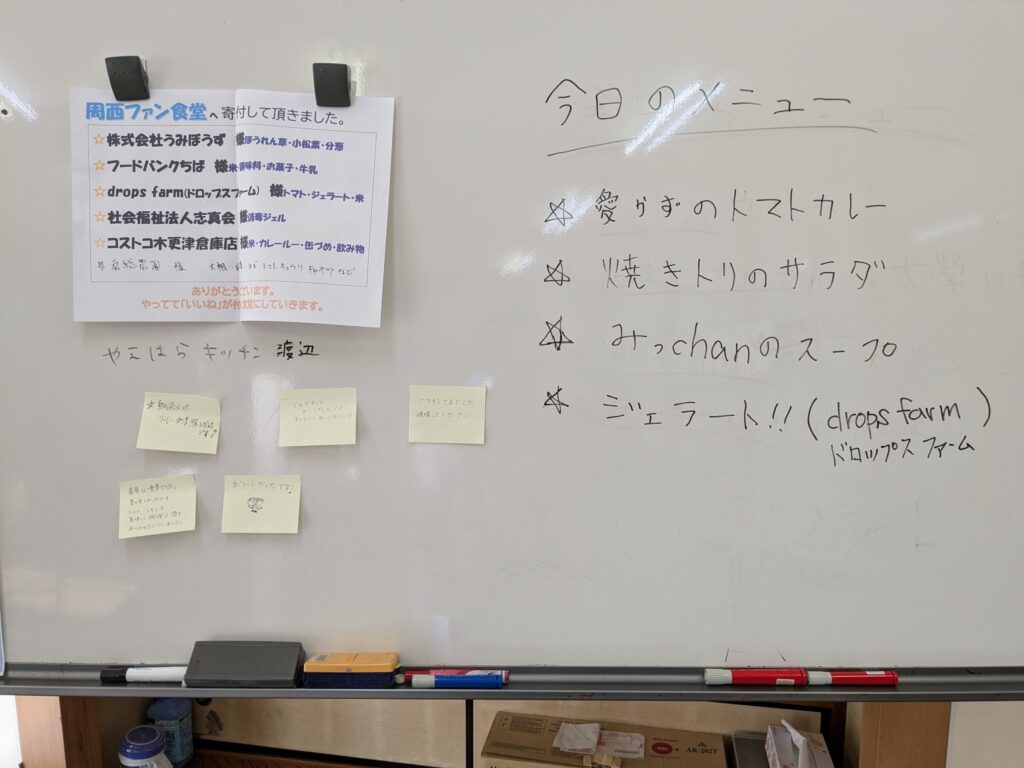 周西ファン食堂へ寄付して頂きました。
☆株式会社うみぼうず 様ほうれん草・小松菜・分葱
☆フードバンクちば 様米・調味料・お菓子・牛乳
☆drops farm(ドロップスファーム) 様トマト・ジェラート・米
☆社会福祉法人志真会 様消毒ジェル
☆コストコ木更津倉庫店 様米・カレールー・缶づめ・飲み物
様 トマト キュウリ など
ありがとうございます。
やってて「いいね」が食堂にしていきます。
やえはらキッチン 渡辺
ごちそうさまでした
頑張ってください
おいしかったです!
今日のメニュー
☆ 愛かずのトマトカレー
☆ 焼きトリのサラダ
☆ みっchanのスープ
☆ ジェラート!!(drops farm)
ドロップス ファーム
AR-202T